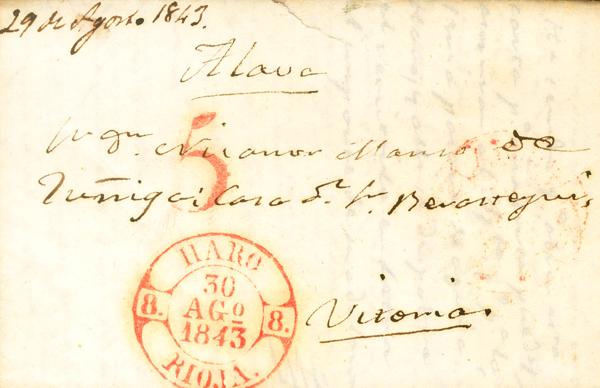 29 de Agosto. 1843.
Alava
5
Sr. Dn. Nicanor Manso de
Zuñiga i Casa Dr. Sr. Berastegui,
Vitoria.
HARO
30
8. AGº 8.
1843
RIOJA.